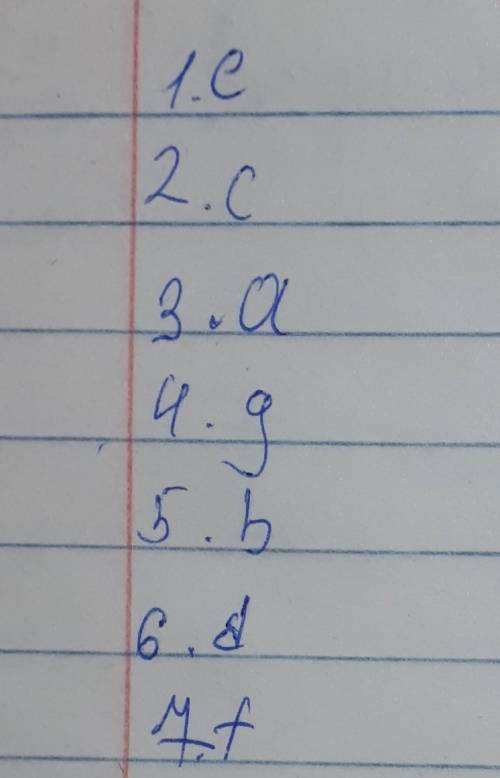 1. e
2. c
3. a
4. g
5. b
6. d
7. f